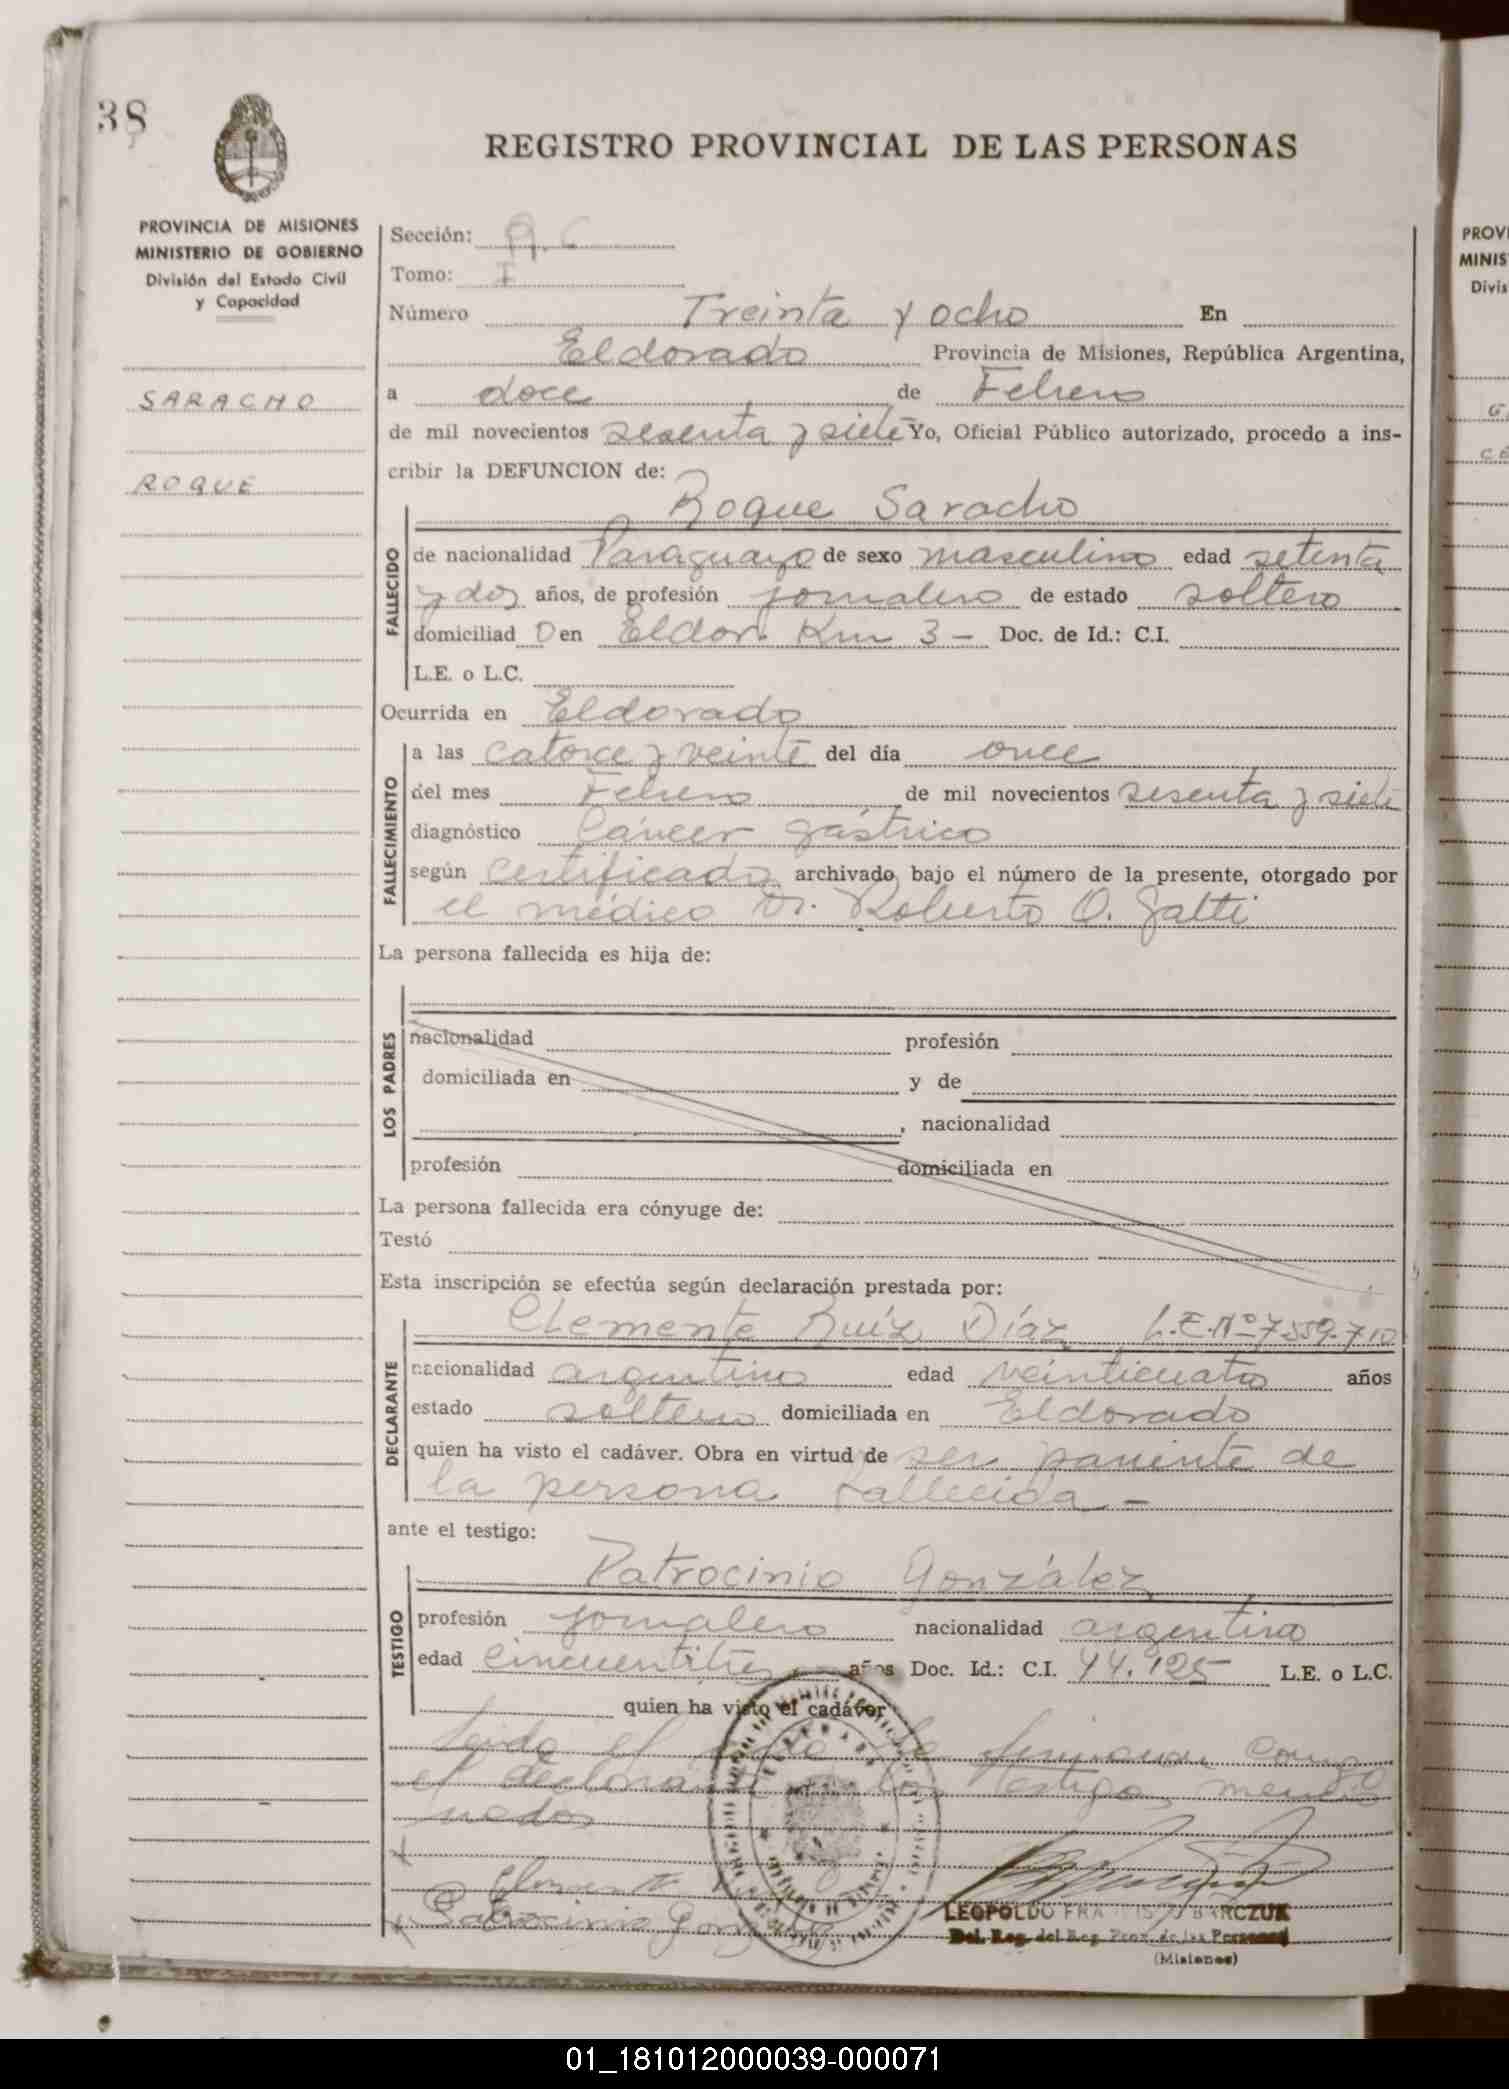 38
REGISTRO PROVINCIAL DE LAS PERSONAS
PROVINCIA DE MISIONES
MINISTERIO DE GOBIERNO
División del Estado Civil
y Capacidad
SARACHO
ROQUE
Sección:
Tomo: I
Número Treinta y ocho En
Eldorado Provincia de Misiones, República Argentina,
a doce de Febrero
de mil novecientos sesenta y siete Yo, Oficial Público autorizado, procedo a ins-
cribir la DEFUNCION de:
Roque Saracho
FALLECIDO
de nacionalidad Paraguayo de sexo masculino edad setenta
y dos años, de profesión jornalero de estado soltero
domiciliad o en Eldor. Km 3 - Doc. de Id.: C.I.
L.E. o L.C.
Ocurrida en Eldorado
FALLECIMIENTO
a las catorce y veinte del día once
del mes Febrero de mil novecientos sesenta y siete
diagnóstico Cáncer gástrico
según certificado archivado bajo el número de la presente, otorgado por
el médico Dr. Roberto O. Gatti
La persona fallecida es hija de:
LOS PADRES
nacionalidad profesión
domiciliada en y de
, nacionalidad
profesión domiciliada en
La persona fallecida era cónyuge de:
Testó
Esta inscripción se efectúa según declaración prestada por:
Clemente Ruíz Díaz L.E.Nº 7.559.710
DECLARANTE
nacionalidad argentino edad veinticuatro años
estado soltero domiciliada en Eldorado
quien ha visto el cadáver. Obra en virtud de ser pariente de
la persona fallecida -
ante el testigo:
Patrocinio González
TESTIGO
profesión jornalero nacionalidad argentino
edad cincuentitres años Doc. Id.: C.I. 44.125 L.E. o L.C.
quien ha visto el cadáver
Leída el acta la firman como
el declarante los testigos mencio
nados
Patrocinio Gonzalez
LEOPOLDO FRANCISCO BARCZUK
Del. Reg. del Reg. Prov. de las Personas
(Misiones)
PROVI
MINIS
Divis
G
CE
01_181012000039-000071